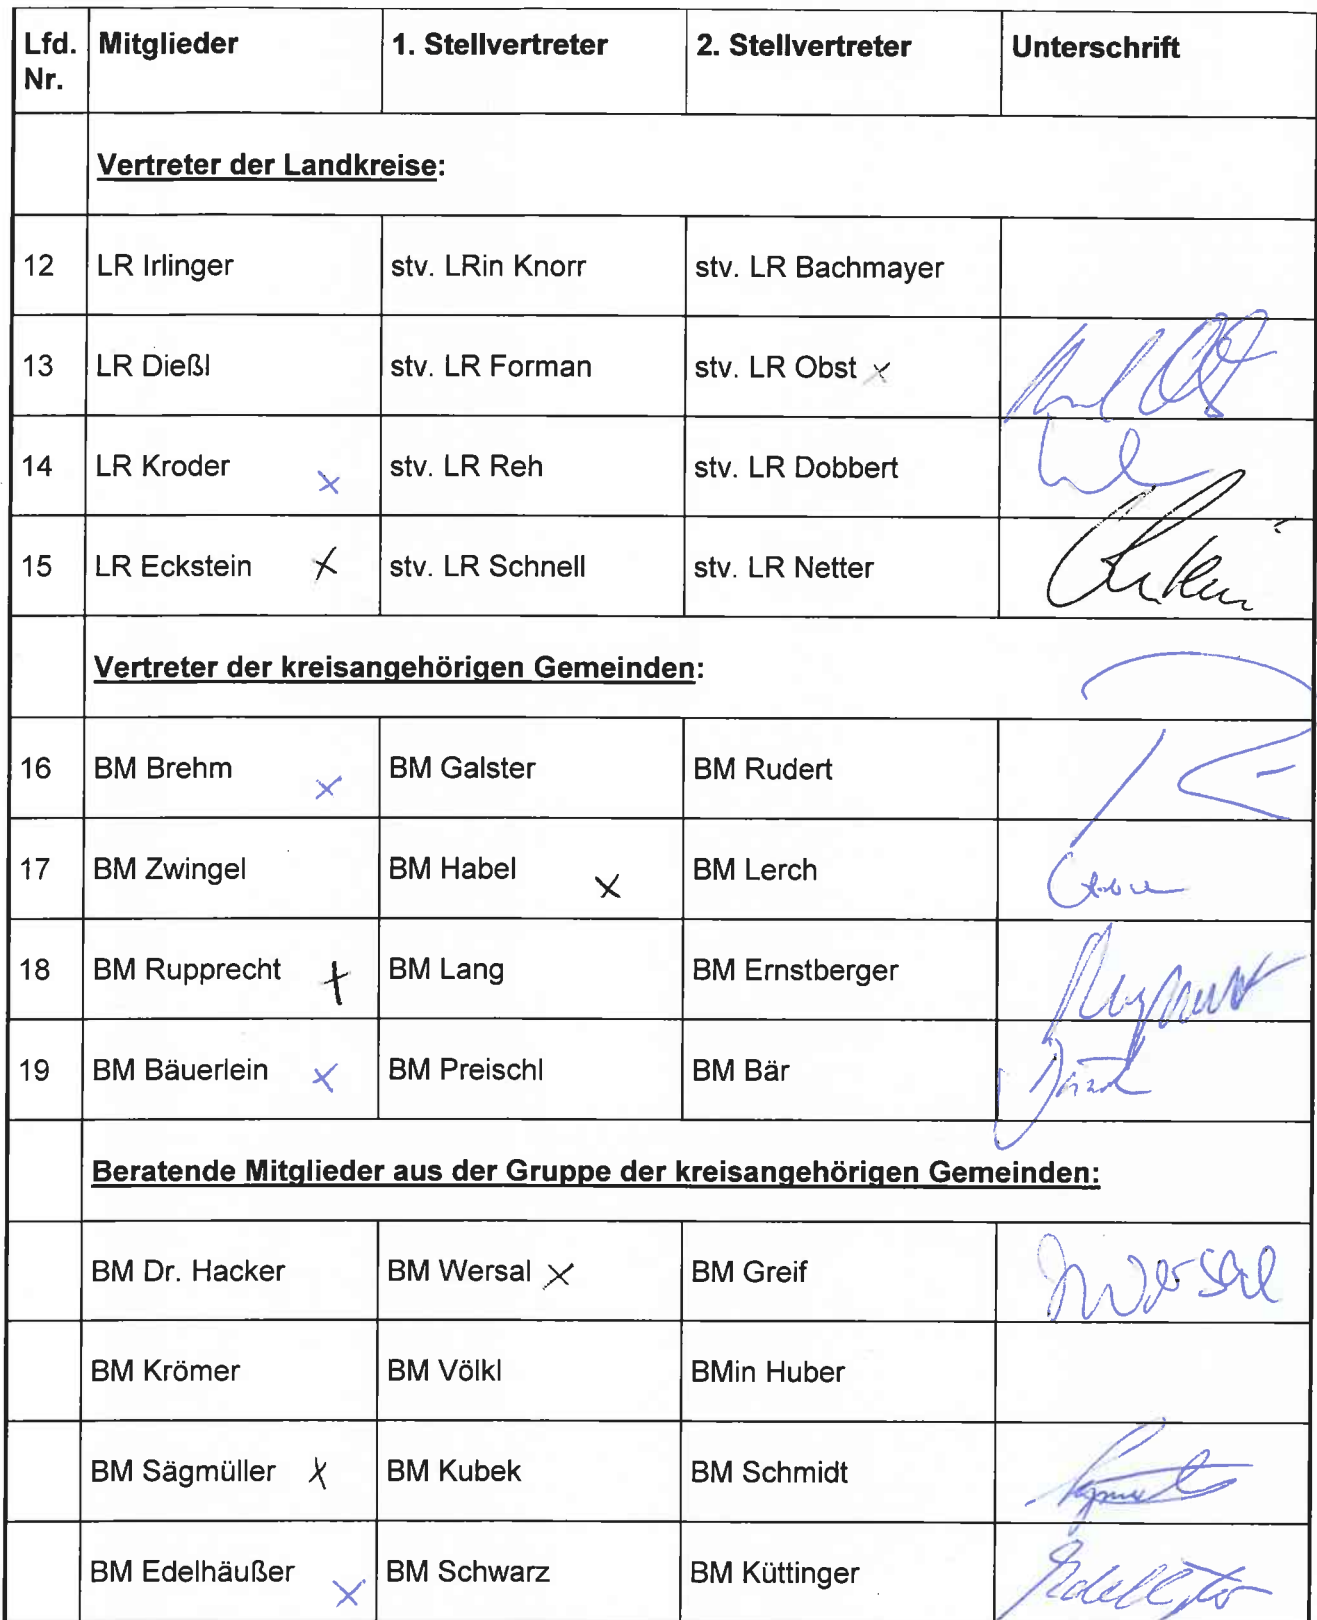 Lfd. Nr. Mitglieder 1. Stellvertreter 2. Stellvertreter Unterschrift
Vertreter der Landkreise:
12 LR Irlinger stv. LRin Knorr stv. LR Bachmayer
13 LR Dießl stv. LR Forman stv. LR Obst x
14 LR Kroder x stv. LR Reh stv. LR Dobbert
15 LR Eckstein x stv. LR Schnell stv. LR Netter
Vertreter der kreisangehörigen Gemeinden:
16 BM Brehm x BM Galster BM Rudert
17 BM Zwingel BM Habel x BM Lerch
18 BM Rupprecht x BM Lang BM Ernstberger
19 BM Bäuerlein x BM Preischl BM Bär
Beratende Mitglieder aus der Gruppe der kreisangehörigen Gemeinden:
BM Dr. Hacker BM Wersal x BM Greif Wersal
BM Krömer BM Völkl BMin Huber
BM Sägmüller x BM Kubek BM Schmidt
BM Edelhäußer x BM Schwarz BM Küttinger